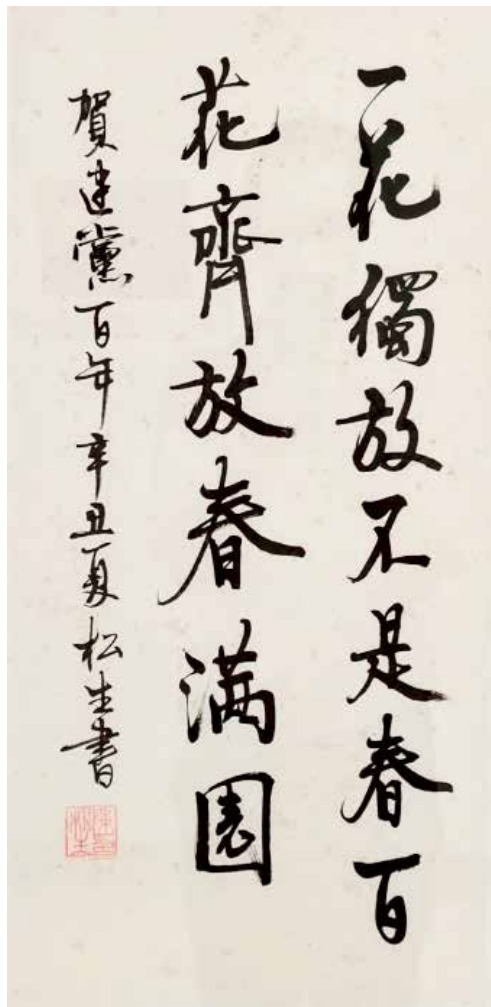 一花獨放不是春百
花齊放春滿園
賀建黨百年辛丑夏松生書